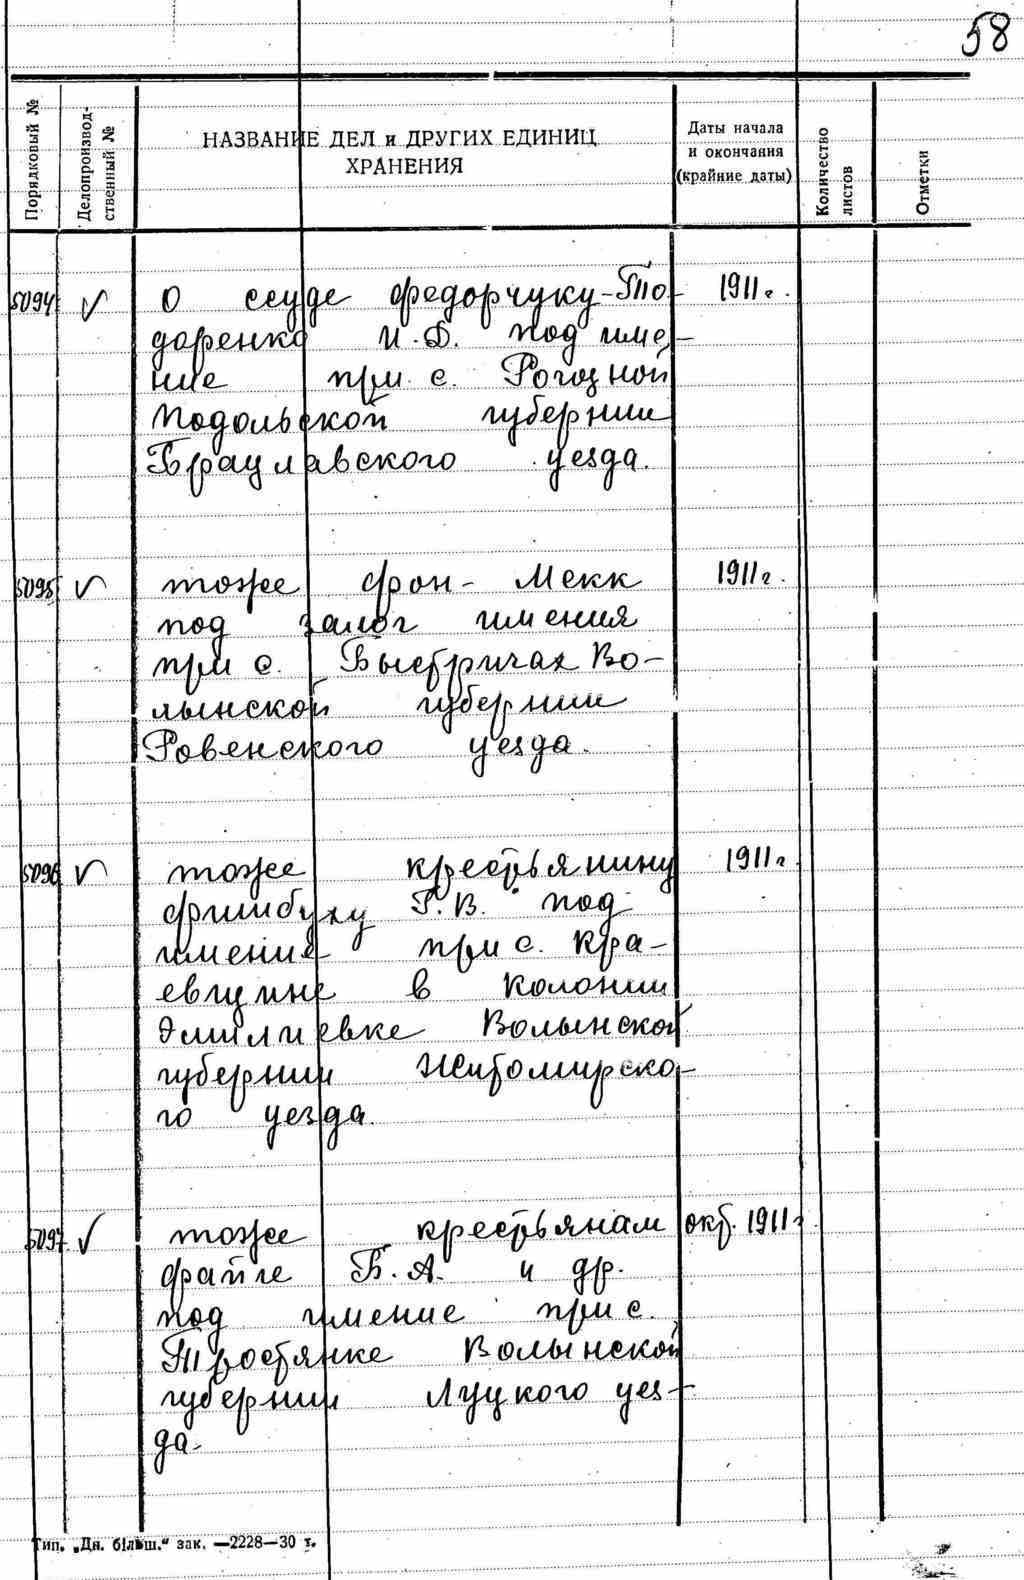 58
Порядковый №
Делопроизвод-
ственный №
НАЗВАНИЕ ДЕЛ и ДРУГИХ ЕДИНИЦ
ХРАНЕНИЯ
Даты начала
и окончания
(крайние даты)
Количество
листов
Отметки
5094 ✓ О ссуде Федорчуку-То- 1911 г.
доренко И.Д. под име-
ние при с. Рогозной
Подольской губернии
Брацлавского уезда.
5095 ✓ тоже фон-Мекк 1911 г.
под залог имения
при с. Быстричах Во-
лынской губернии
Ровенского уезда.
5096 ✓ тоже крестьянину 1911 г.
Г.В. под
имение при с. Кра-
евщине в колонии
Эмилиевке Волынской
губернии Житомирско-
го уезда.
5097 ✓ тоже крестьянам окт. 1911 г.
Файге Б.А. и др.
под имение при с.
Тростянке Волынской
губернии Луцкого уез-
да.
Тип. „Дн. більш.“ зак. —2228—30 т.